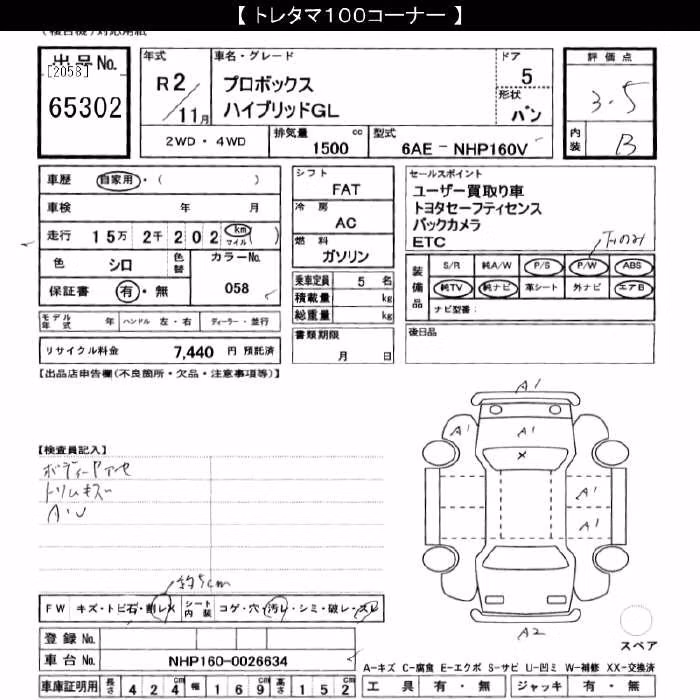 【 トレタマ100コーナー 】
出品No.
[2058]
65302
年式
R2/11月
車名・グレード
プロボックス
ハイブリッドGL
ドア
5
形状
バン
評価点
3.5
内装
B
2WD・4WD
排気量 cc
1500
型式
6AE - NHP160V
車歴 自家用・( )
車検 年 月
走行 15万 2千 202 km マイル ( )
色 シロ 色替
カラーNo.
058
保証書 有・無
モデル年式 年 ハンドル 左・右 ディーラー・並行
リサイクル料金 7,440 円 預託済
シフト
FAT
冷房
AC
燃料
ガソリン
乗車定員 5 名
積載量 kg
総重量 kg
書類期限
月 日
セールスポイント
ユーザー買取り車
トヨタセーフティセンス
バックカメラ
ETC
装備品
S/R 純A/W P/S P/W ABS
純TV 純ナビ 革シート 外ナビ エアB
ナビ型番:
後日品
【出品店申告欄(不良箇所・欠品・注意事項等)】
【検査員記入】
トリムキズ
A・U
約5cm
FW キズ・トビ石・割レX シート内装 コゲ・穴・汚レ・シミ・破レ・スレ
登録No.
車台No. NHP160-0026634
車庫証明用 長さ 424cm 幅 169cm 高さ 152cm
A1
A1
A1
X
A1
A1
A2
スペア
A-キズ C-腐食 E-エクボ S-サビ U-凹ミ W-補修 XX-交換済
工具 有・無 ジャッキ 有・無